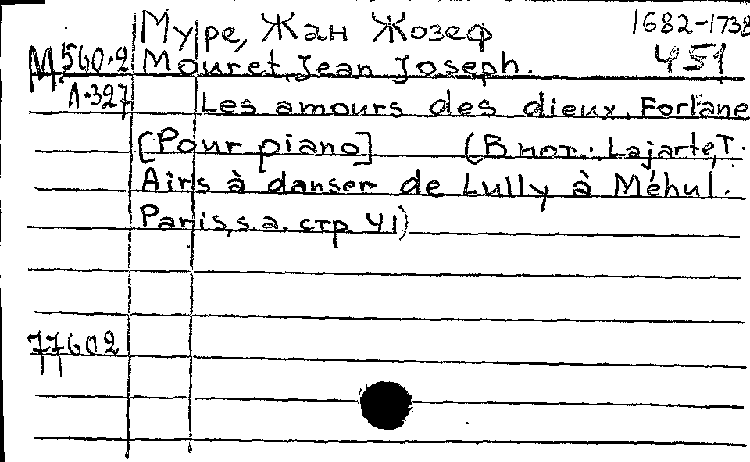 Муре, Жан Жозеф 1682-1738
М 560.2 Mouret, Jean Joseph. 451
Л-327 Les amours des dieux. Forlane
[Pour piano] (В нот.: Lajarte, T.
Airs à danser de Lully à Méhul.
Paris, s.a. стр. 41)
77602